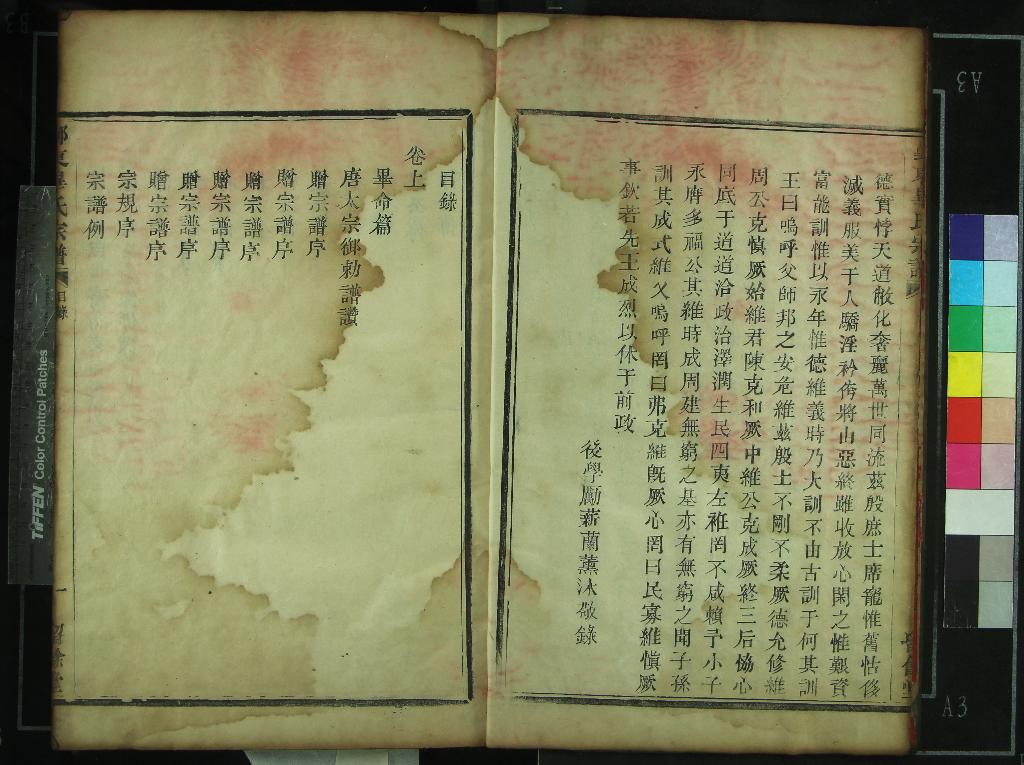 德實悖天道敝化奢麗萬世同流茲殷庶士席寵惟舊怙侈
滅義服美于人驕淫矜侉將由惡終雖收放心閑之惟艱資
富能訓惟以永年惟德維義時乃大訓不由古訓于何其訓
王曰嗚呼父師邦之安危維茲殷士不剛不柔厥德允修維
周公克慎厥始維君陳克和厥中維公克成厥終三后恊心
同底于道道洽政治澤潤生民四夷左袵罔不咸賴予小子
永膺多福公其維時成周建無窮之基亦有無窮之聞子孫
訓其成式維乂嗚呼罔曰弗克維旣厥心罔曰民寡維慎厥
事欽若先王成烈以休于前政
後學勵薪蘭薰沐敬錄
目錄
卷上
畢命篇
唐太宗御勅譜讚
贈宗譜序
贈宗譜序
贈宗譜序
贈宗譜序
贈宗譜序
贈宗譜序
宗規序
宗譜例
畢氏宗譜
目錄
一
TIFFEN Color Control Patches
A3
A3